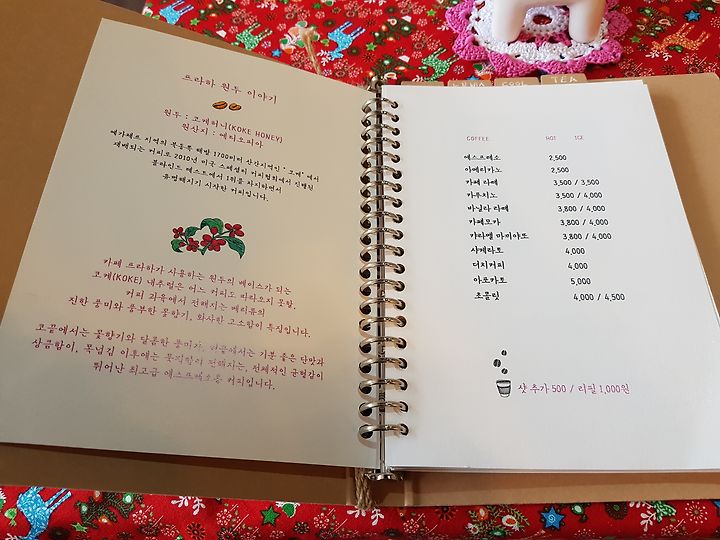 프라하 원두 이야기
원두 : 코케허니(KOKE HONEY)
원산지 : 에티오피아
예가체프 지역의 북동쪽 해발 1700미터 산간지역인 "코케"에서
재배되는 커피로 2010년 미국 스페셜티 커피협회에서 진행된
블라인드 테스트에서 1위를 차지하면서
유명해지기 시작한 커피입니다.
카페 프라하가 사용하는 원두의 베이스가 되는
코케(KOKE) 내추럴은 어느 커피도 따라오지 못할,
커피 과육에서 전해지는 베리류의
진한 풍미와 풍부한 꽃향기, 화사한 고소함이 특징입니다.
코끝에서는 꽃향기와 달콤한 풍미가, 혀끝에서는 기분 좋은 단맛과
상큼함이, 목넘김 이후에는 묵직함이 전해지는, 전체적인 균형감이
뛰어난 최고급 에스프레소용 커피입니다.
TEA
COFFEE HOT ICE
에스프레소 2,500
아메리카노 2,500
카페 라떼 3,500 / 3,500
카푸치노 3,500 / 4,000
바닐라 라떼 3,800 / 4,000
카페모카 3,800 / 4,000
카라멜 마끼아또 3,800 / 4,000
샤케라토 4,000
더치커피 4,000
아포카토 5,000
초콜릿 4,000 / 4,500
샷 추가 500 / 리필 1,000원